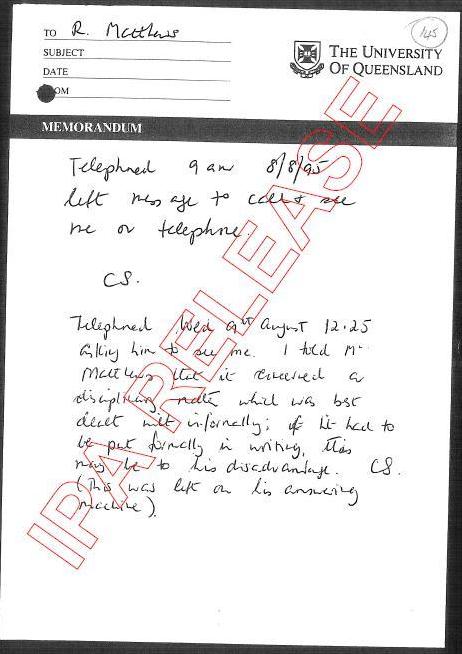 145
TO R. Matthews
SUBJECT
DATE
OM
THE UNIVERSITY
OF QUEENSLAND
MEMORANDUM
Telephoned 9 am 8/8/95
left message to call & see
me or telephone.
CS.
Telephoned Wed 9th August 12.25
asking him to see me. I told Mr
Matthews that it concerned a
disciplinary matter which was best
dealt with informally; if it had to
be put formally in writing, this
may be to his disadvantage. CS.
(This was left on his answering
machine).
IPA RELEASE